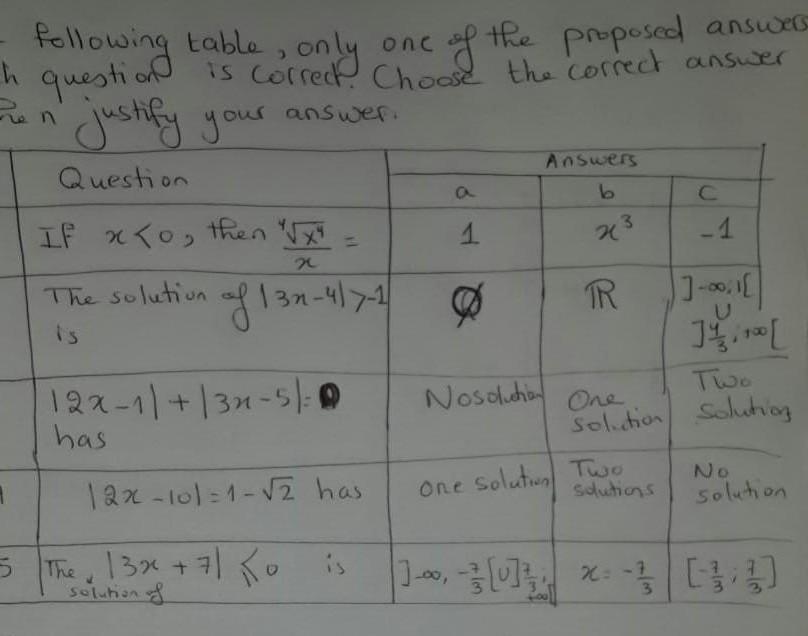 following table, only one of the proposed answers
h question is correct. Choose the correct answer
then justify your answer.
Question
Answers
a b c
If x<0, then ⁴√x⁴/x = 1 x³ -1
The solution of |3x-4|>-1 is ∅ ℝ ]-∞;1[ ∪ ]4/3;+∞[
|2x-1|+|3x-5|=0 has No solution One solution Two solutions
|2x-10|=1-√2 has one solution Two solutions No solution
5 The solution of |3x+7| ≤0 is ]-∞,-7/3[∪]7/3;+∞[ x=-7/3 [-7/3;7/3]